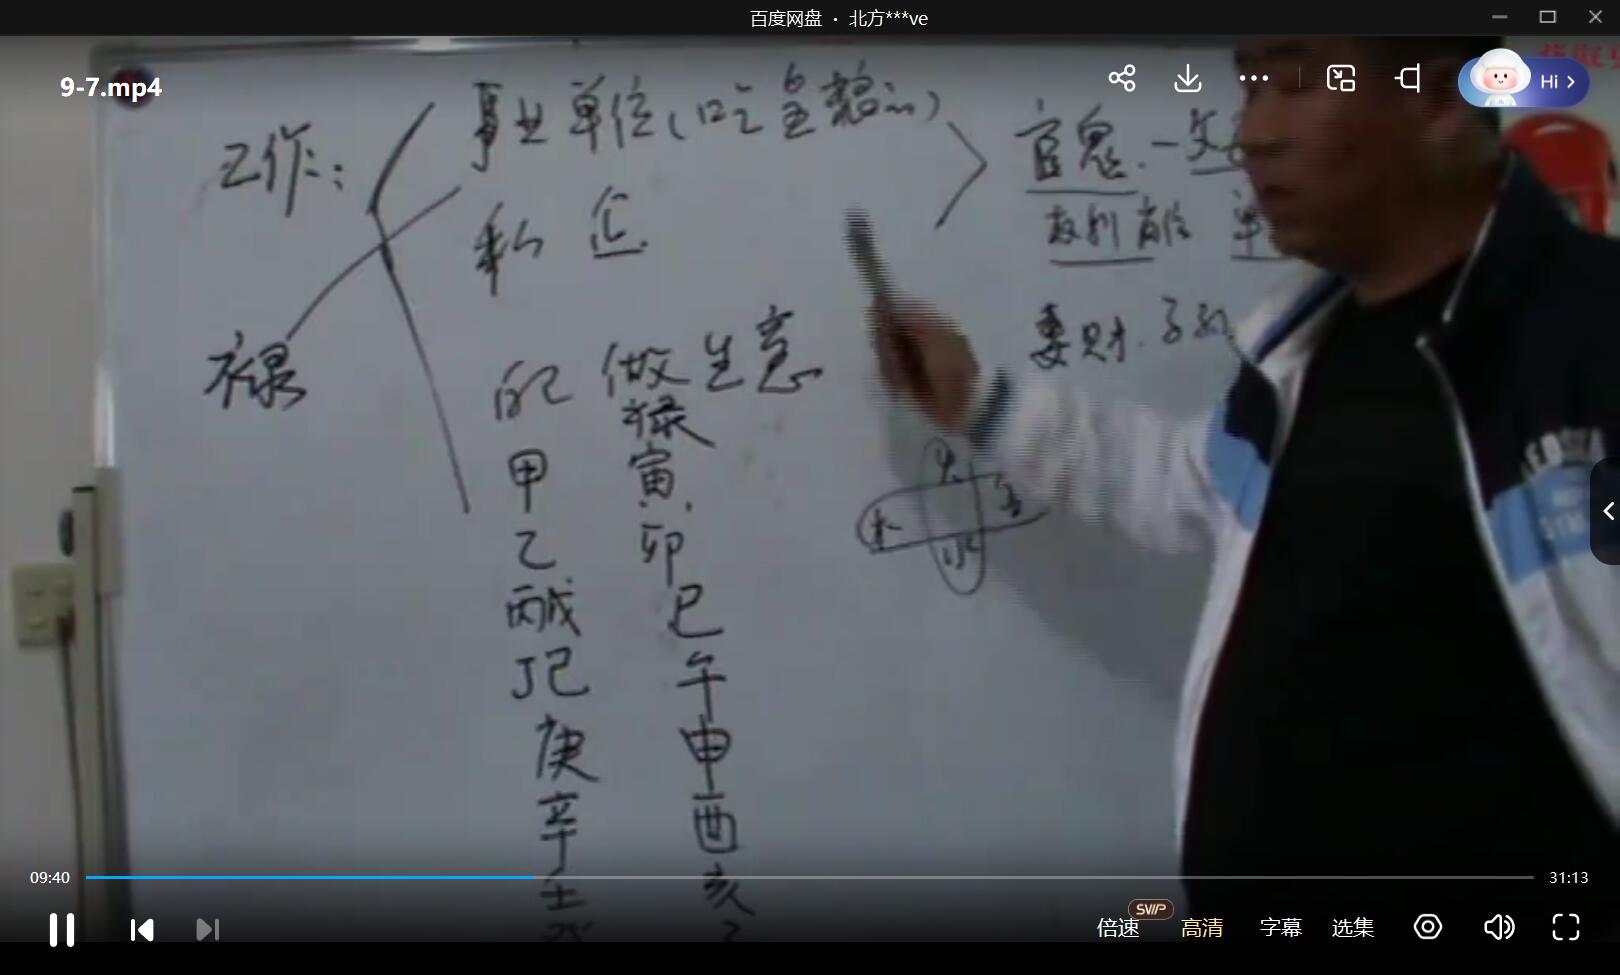 百度网盘 · 北方***ve
9-7.mp4
Hi
工作：
事业单位(吃皇粮的)
私企
官鬼.一
权利
妻财.子孙
禄
的 做生意
禄
甲 寅
乙 卯
丙戊 巳
丁己 午
庚 申
辛 酉
壬 亥
火
木 金
水
09:40
31:13
SVIP
倍速 高清 字幕 选集